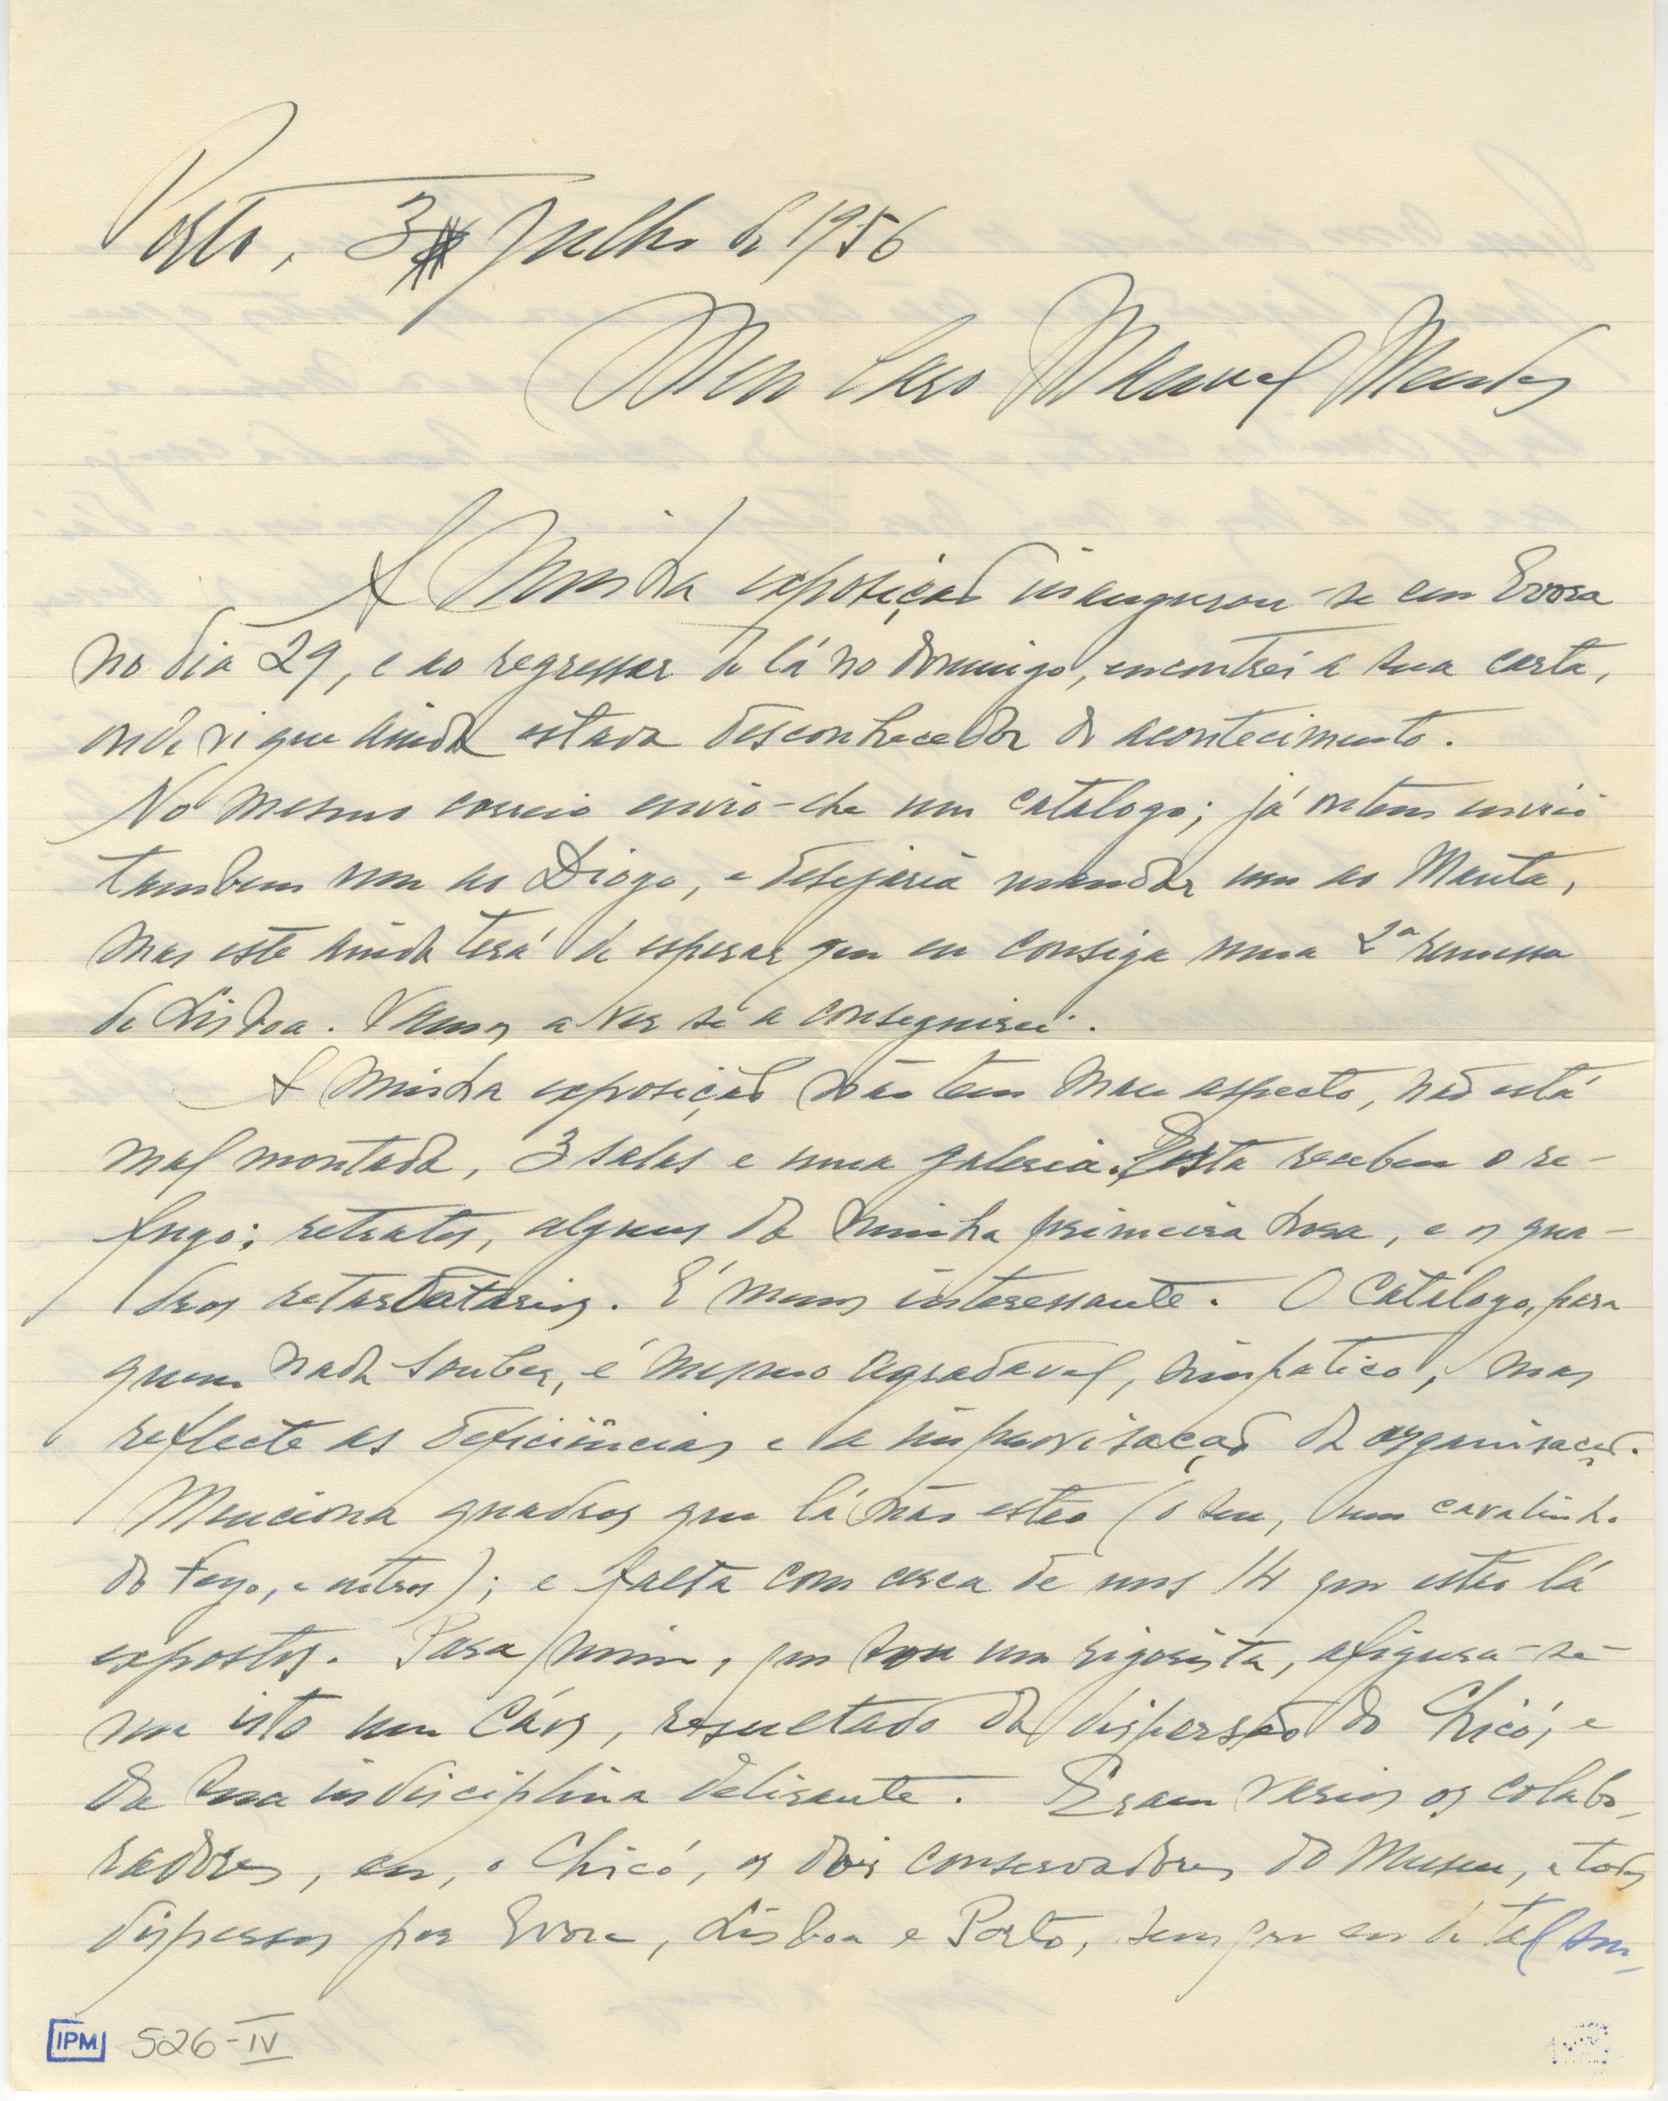 Porto, 3 Julho de 1956
Meu caro Manuel Mendes
A minha exposição inaugurou-se em Evora
no dia 29, e ao regressar de lá no domingo, encontrei a sua carta,
onde vi que ainda estava desconhecedor do acontecimento.
No mesmo correio envio-lhe um catálogo; já ontem enviei
tambem um ao Diogo, e desejaria mandar um ao Manta,
mas este ainda terá de esperar que eu consiga uma 2ª remessa
de Lisboa. Vamos a ver se a conseguirei.
A minha exposição não tem mau aspecto, não está
mal montada, 3 salas e uma galeria. Esta recebeu o re-
fugo: retratos, alguns da minha primeira hora, e os qua-
dros retardatarios. É menos interessante. O Catálogo, para
quem nada souber, é mesmo agradavel, simpatico, mas
reflecte as deficiências e a improvisação da organisação.
Menciona quadros que lá não estão (o seu, um cavalinho
de Fogo, e outros); e falta com cerca de uns 14 que estão lá
expostos. Para mim, que sou um rigorista, afigura-se-
me isto um Cáos, resultado da dispersão do Chicó, e
da sua indisciplina delirante. Eram varios os colabo-
radores, eu, o Chicó, os dois conservadores do Museu, e todos
dispersos por Evora, Lisboa e Porto, sem que eu de tal
IPM 526-IV